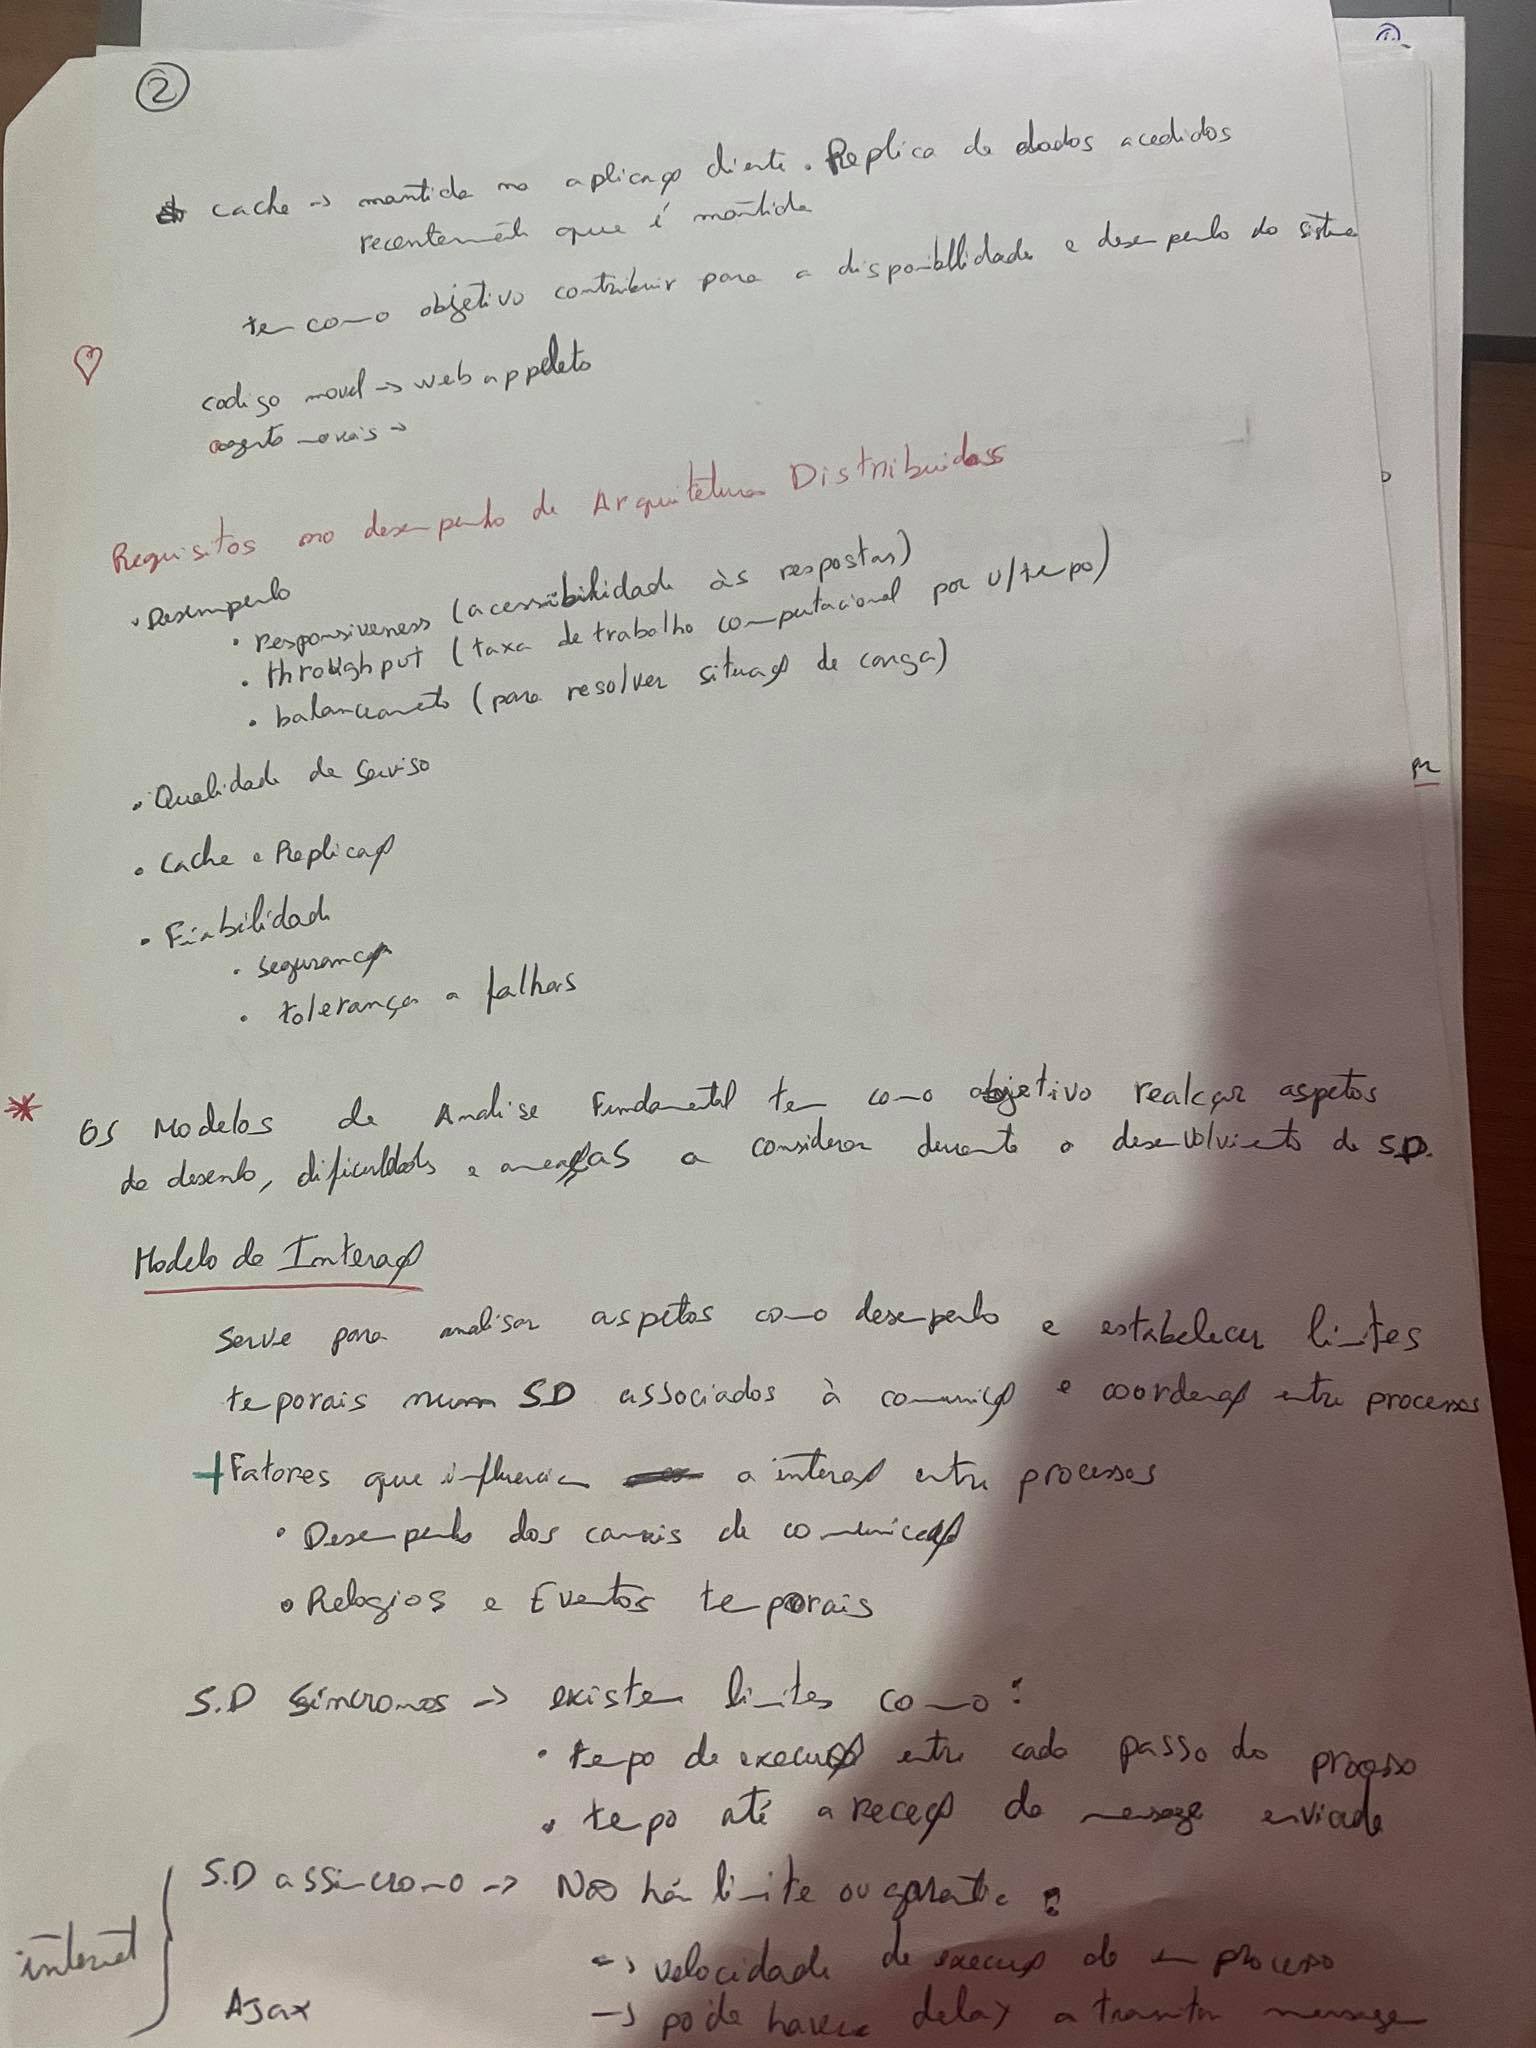 2
cache → mantida na aplicação cliente. Replica de dados acedidos
recentemente que é mantida
tem como objetivo contribuir para a disponibilidade e desempenho do sistema
codigo movel → web appleto
agento moveis →
Requisitos no desempenho de Arquiteturas Distribuidas
• Desempenho
• responsiveness (acessibilidade às respostas)
• throughput (taxa de trabalho computacional por u/tempo)
• balanceamento (para resolver situação de carga)
• Qualidade de Serviso
• Cache e Replicação
• Fiabilidade
• segurança
• tolerança a falhas
* Os Modelos de Analise Fundamental tem como objetivo realçar aspetos
de desenho, dificuldades e ameaças a considerar durante o desenvolvimento de SD.
Modelo de Interação
Serve para analisar aspetos como desempenho e estabelecer limites
temporais num SD associados à comunicação e coordenação entre processos
+ Fatores que influenciam a interação entre processos
• Desempenho dos canais de comunicação
• Relogios e Eventos temporais
S.D Síncronos → existem limites como:
• tempo de execução entre cada passo do processo
• tempo até a receção da mensagem enviada
S.D assincrono → Não há limite ou garantia:
internet
→ velocidade de execução de um processo
Ajax
→ pode haver delay a transmitir mensagem